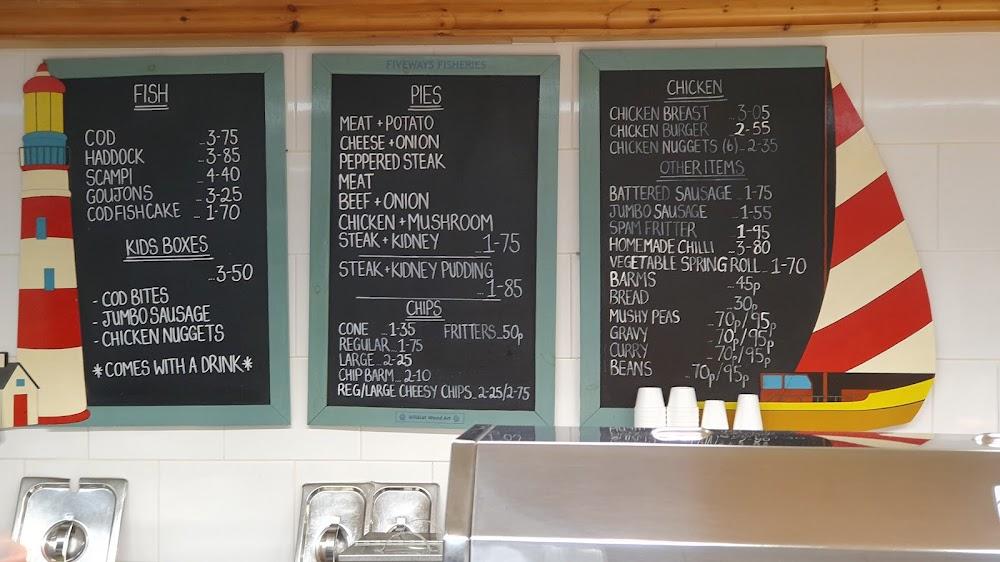 FISH
COD ..3-75
HADDOCK ..3-85
SCAMPI ..4-40
GOUJONS ..3-25
COD FISHCAKE ..1-70
KIDS BOXES
..3-50
- COD BITES
- JUMBO SAUSAGE
- CHICKEN NUGGETS
*COMES WITH A DRINK*
FIVEWAYS FISHERIES
PIES
MEAT + POTATO
CHEESE + ONION
PEPPERED STEAK
MEAT
BEEF + ONION
CHICKEN + MUSHROOM
STEAK + KIDNEY ..1-75
STEAK + KIDNEY PUDDING
..1-85
CHIPS
CONE ..1-35 FRITTERS..50p
REGULAR..1-75
LARGE..2-25
CHIP BARM..2-10
REG/LARGE CHEESY CHIPS..2-25/2-75
Wildcat Wood Art
CHICKEN
CHICKEN BREAST ..3-05
CHICKEN BURGER ..2-55
CHICKEN NUGGETS (6)..2-35
OTHER ITEMS
BATTERED SAUSAGE ..1-75
JUMBO SAUSAGE ..1-55
SPAM FRITTER ..1-95
HOMEMADE CHILLI ..3-80
VEGETABLE SPRING ROLL..1-70
BARMS ..45p
BREAD ..30p
MUSHY PEAS ..70p/95p
GRAVY ..70p/95p
CURRY ..70p/95p
BEANS ..70p/95p